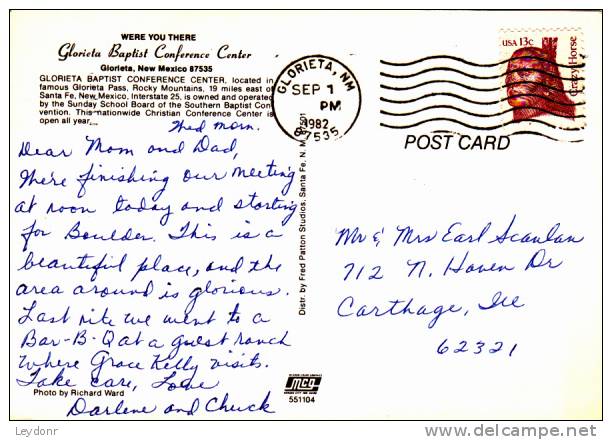 WERE YOU THERE
Glorieta Baptist Conference Center
Glorieta, New Mexico 87535
GLORIETA BAPTIST CONFERENCE CENTER, located in
famous Glorieta Pass, Rocky Mountains, 19 miles east of
Santa Fe, New Mexico, Interstate 25, is owned and operated
by the Sunday School Board of the Southern Baptist Con-
vention. This nationwide Christian Conference Center is
open all year.
Wed morn.
Dear Mom and Dad,
We're finishing our meeting
at noon today and starting
for Boulder. This is a
beautiful place, and the
area around is glorious.
Last nite we went to a
Bar-B-Q at a guest ranch
where Grace Kelly visits.
Take care, Love
Darlene and Chuck
Photo by Richard Ward
Distr. by Fred Patton Studios, Santa Fe, N. M. 87501
MCG
551104
GLORIETA, NM
SEP 1
PM
1982
87535
USA 13c
Crazy Horse
POST CARD
Mr & Mrs Earl Scanlan
712 N. Haven Dr
Carthage, Ill
62321
Leydonr
delcampe.net